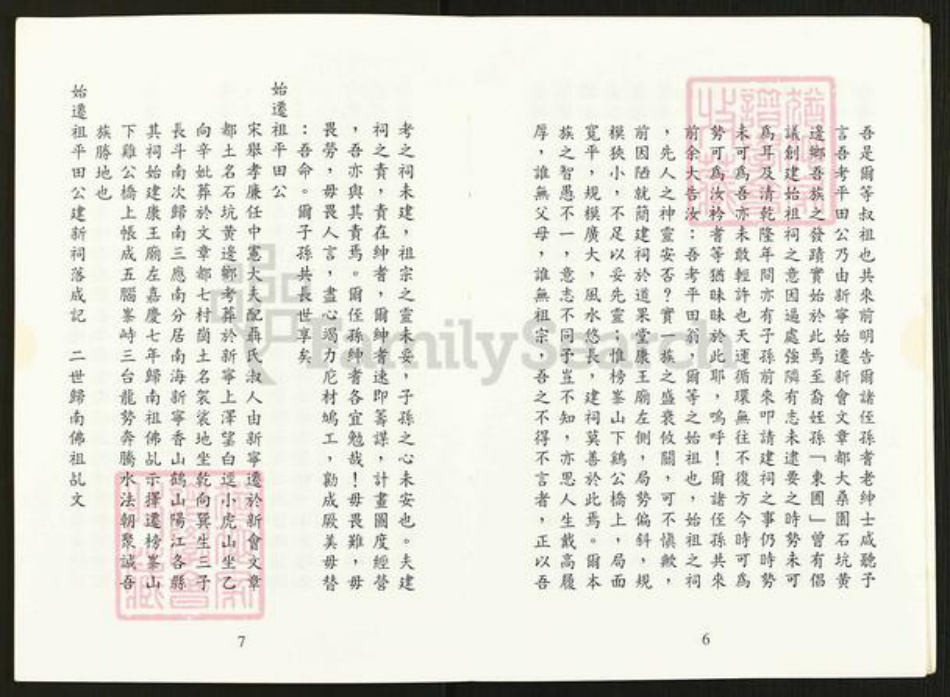 吾是爾等叔祖也共來前明告爾諸侄孫耆老紳士咸聽予
言吾考平田公乃由新寧始遷新會文章都大桑園石坑黃
邊鄉吾族之發蹟實始於此焉至裔姪孫「東圃」曾有倡
議創建始祖祠之意因逼處強隣有志未逮要之時勢未可
為耳及清乾隆年間亦有子孫前來叩請建祠之事仍時勢
未可為吾亦未敢輕許也天運循環無往不復方今時可為
勢可為汝衿耆等猶昧昧於此耶，嗚呼！爾諸侄孫共來
前余大告汝：吾考平田翁，爾等之始祖也，始祖之祠
，先人之神靈安否？實一族之盛衰攸關，可不慎歟，
前因陋就簡建祠於道果堂康王廟左側，局勢偏斜，規
模狹小，不足以妥先靈；惟榜峯山下鷄公橋上，局面
寬平，規模廣大，風水悠長，建祠莫善於此焉。爾本
族之智愚不一，意志不同予豈不知，亦思人生戴高履
厚，誰無父母，誰無祖宗，吾之不得不言者，正以吾
6
考之祠未建，祖宗之靈未妥，子孫之心未安也。夫建
祠之責，責在紳者，爾紳者速即籌謀，計畫圖度經營
，吾亦與其責焉。爾侄孫紳者各宜勉哉！毋畏難，毋
畏勞，毋畏人言，盡心竭力庀材鳩工，勷成厥美毋替
：吾命。爾子孫共長世享矣
始遷祖平田公
宋舉孝廉任中憲大夫配聶氏淑人由新寧遷於新會文章
都土名石坑黃邊鄉考葬於新寧上澤望白逕小虎山坐乙
向辛妣葬於文章都七村崗土名袈裟地坐乾向巽生三子
長斗南次歸南三應南分居南海新寧香山鶴山陽江各縣
其祠始建康王廟左嘉慶七年歸南祖佛乩示擇遷榜峯山
下雞公橋上帳成五腦峯峙三台龍勢奔騰水法朝聚誠吾
族勝地也
始遷祖平田公建新祠落成記　二世歸南佛祖乩文
7
FamilySearch